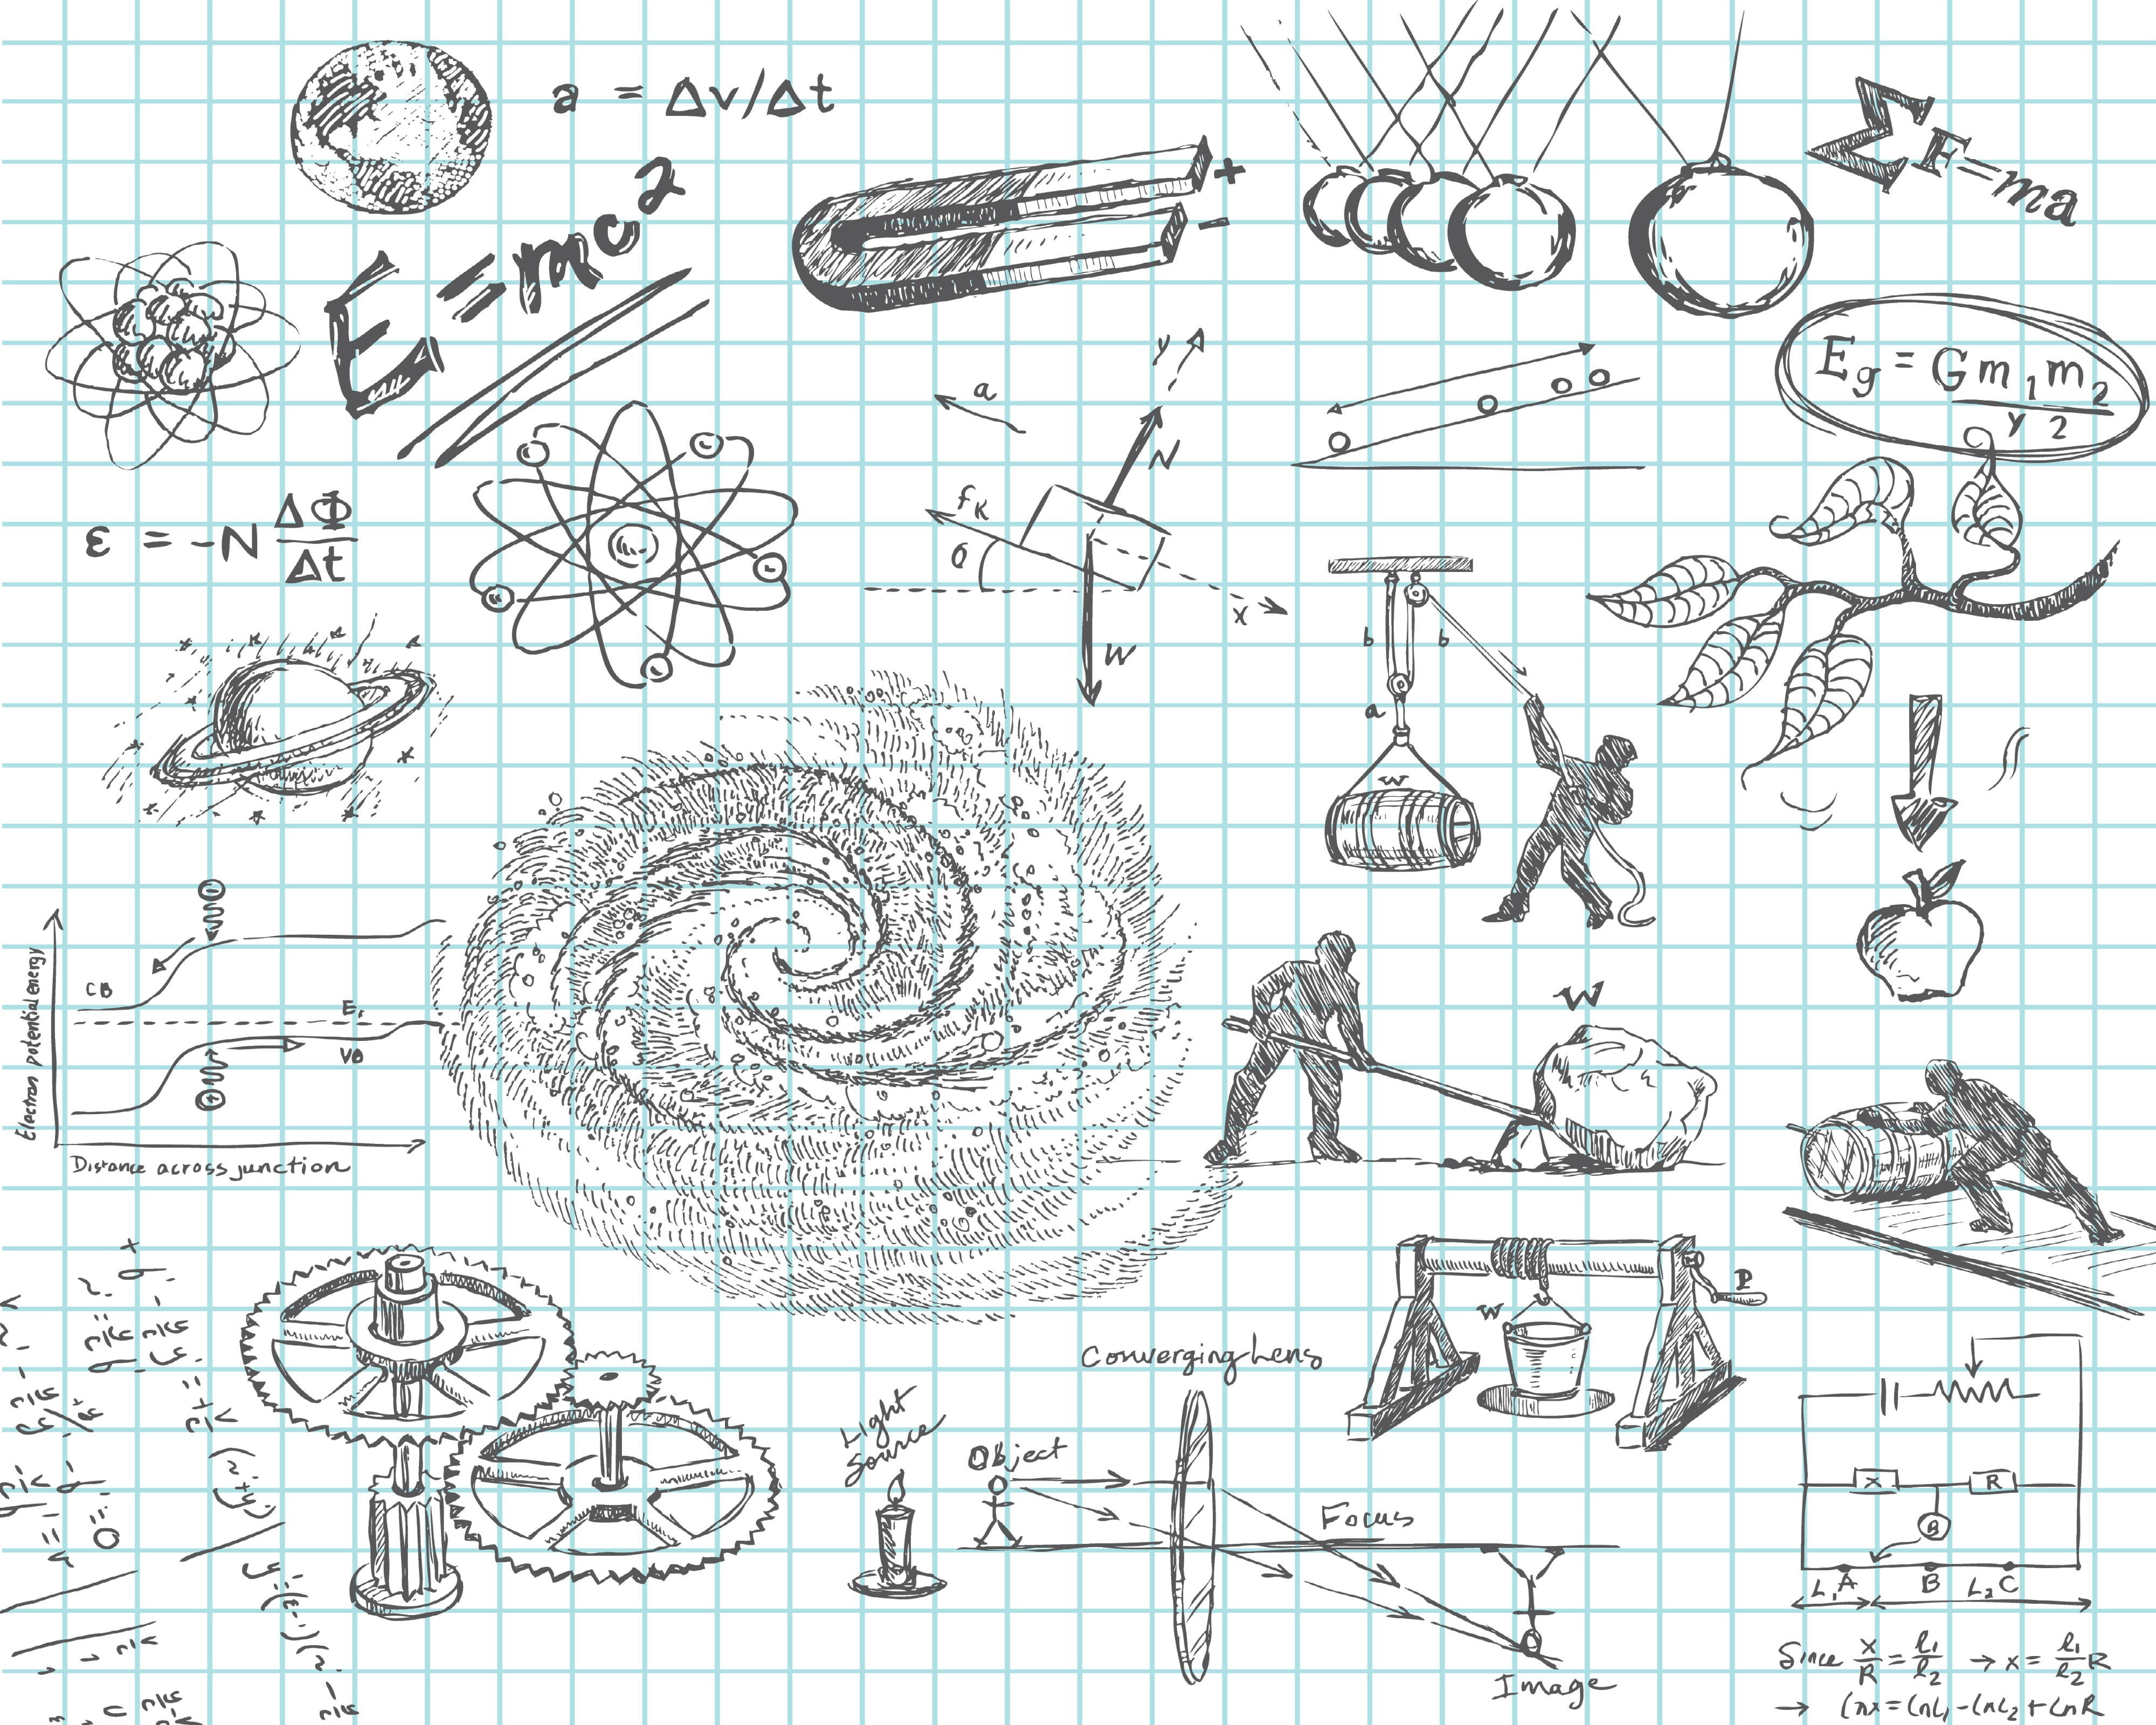 a = Δv/Δt
+
-
ΣF=ma
E=mc²
E_g = Gm₁m₂
y 2
y
a
N
f_K
θ
x
W
ε = -N ΔΦ/Δt
b
b
a
w
Electron potential energy
CB
E
VB
Distance across junction
W
P
w
Converging Lens
Light
Source
Object
Focus
Image
X
R
A
B
C
L₁
L₂
Since x/R = l₁/l₂ → x = l₁/l₂ R
→ lnx = lnL₁ - lnL₂ + lnR